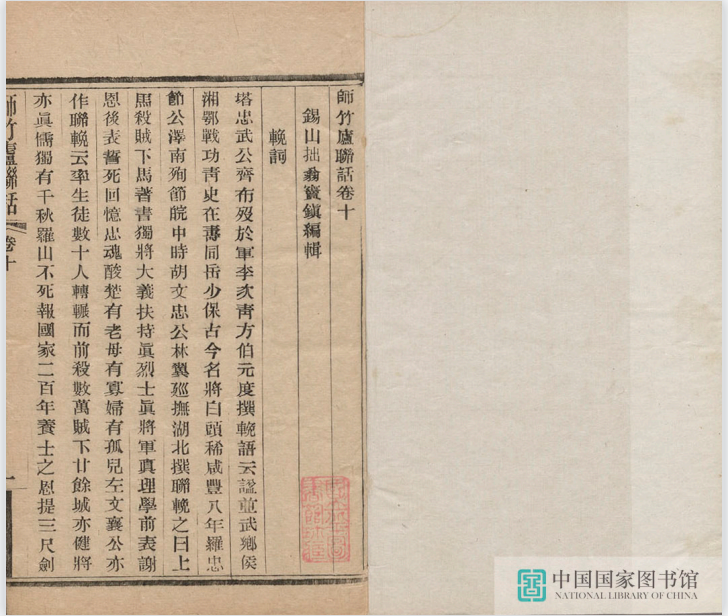 師竹廬聯話卷十
錫山拙翁竇鎮編輯
輓詞
塔忠武公齊布歿於軍李次青方伯元度撰輓語云諡並武鄉侯
湘鄂戰功青史在壽同岳少保古今名將白頭稀咸豐八年羅忠
節公澤南殉節皖中時胡文忠公林翼巡撫湖北撰聯輓之曰上
馬殺賊下馬著書獨將大義扶持眞烈士眞將軍眞理學前表謝
恩後表誓死回憶忠魂酸楚有老母有寡婦有孤兒左文襄公亦
作聯輓云率生徒數十人轉輾而前殺數萬賊下廿餘城亦健將
亦眞儒獨有千秋羅山不死報國家二百年養士之恩提三尺劍
師竹廬聯話 卷十 一
中国国家图书馆
NATIONAL LIBRARY OF CHINA